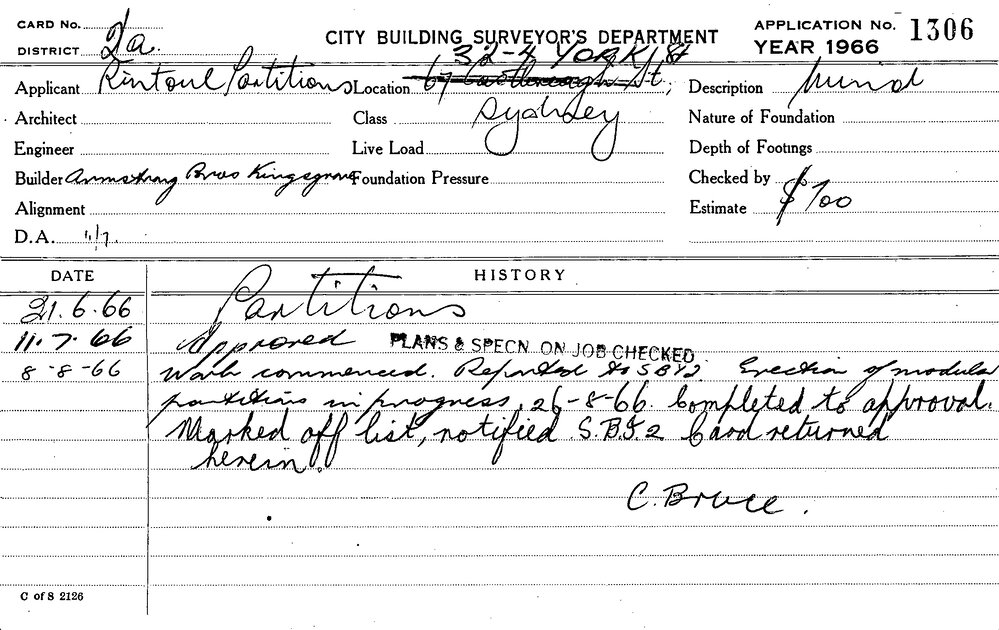 CARD No.
DISTRICT 2a.
CITY BUILDING SURVEYOR'S DEPARTMENT
APPLICATION No. 1306
YEAR 1966
32-4 YORK St
Applicant Rintoul Partitions Location 67 Castlereagh St,
Description Minor
Architect
Class Sydney
Nature of Foundation
Engineer
Live Load
Depth of Footings
Builder Armstrong Bros Kingsgrove Foundation Pressure
Checked by
Alignment
Estimate $700
D.A. 11/7.
DATE HISTORY
21.6.66 Partitions
11.7.66 Approved PLANS & SPECN. ON JOB CHECKED
8-8-66 Work commenced. Reported to S.B.I.2. Erection of modular
partitions in progress. 26-8-66. Completed to approval.
Marked off list, notified S.B.I.2 Card returned
herein.
C. Bruce.
C of S 2126